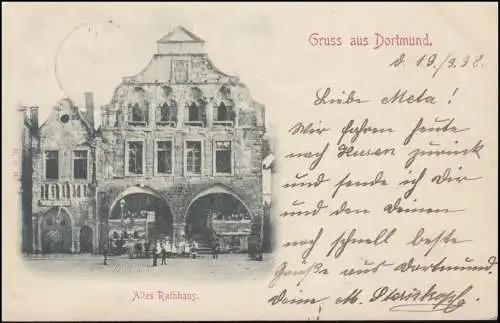 Gruss aus Dortmund.
d. 19./3.98.
Liebe Meta!
Wir fahren heute
nach Husen zurück
und sende ich Dir
und den deinen
noch schnell beste
Grüße aus Dortmund.
deine M.
Altes Rathhaus.